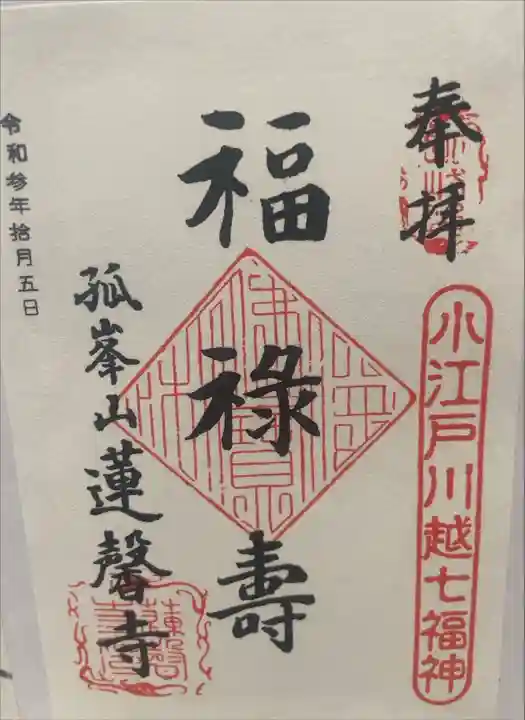 奉拝
小江戸川越七福神
福禄壽
孤峯山蓮馨寺
令和参年拾月五日
蓮馨